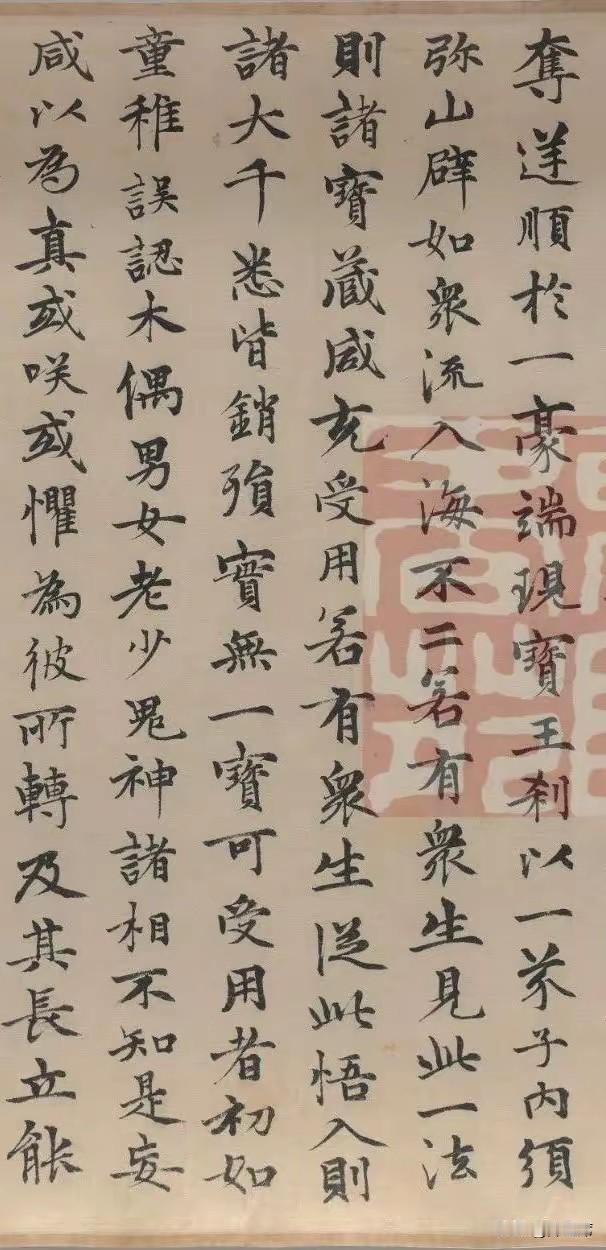 奪逆順於一豪端現寶王刹以一芥子內須
弥山辟如衆流入海不二若有衆生見此一法
則諸寶藏咸充受用若有衆生從此悟入則
諸大千悉皆銷殞實無一寶可受用者初如
童稚誤認木偶男女老少鬼神諸相不知是妄
咸以為真或咲或懼為彼所轉及其長立能